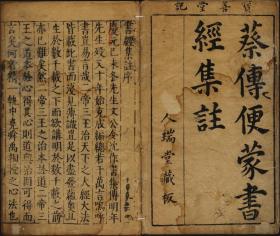 善堂記
蔡傳便蒙書
經集註
人瑞堂藏板
書經集註序
慶元己未冬先生文公令沈作書集傳明年
先生歿又十年始克成編總若干萬言嗚呼
書豈易言哉二帝三王治天下之大經大法
皆載此書而淺見薄識豈足以盡發蘊奧且
生於數千載之下而欲講明於數千載之前
亦已難矣然二帝三王之治本於道二帝三
王之道本於心得其心則道與治固可得而
言矣何者精一執中堯舜禹相授之心法也